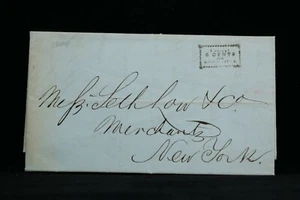 5 CENTS
Messrs. Seth Low & Co.
Merchants
New York.